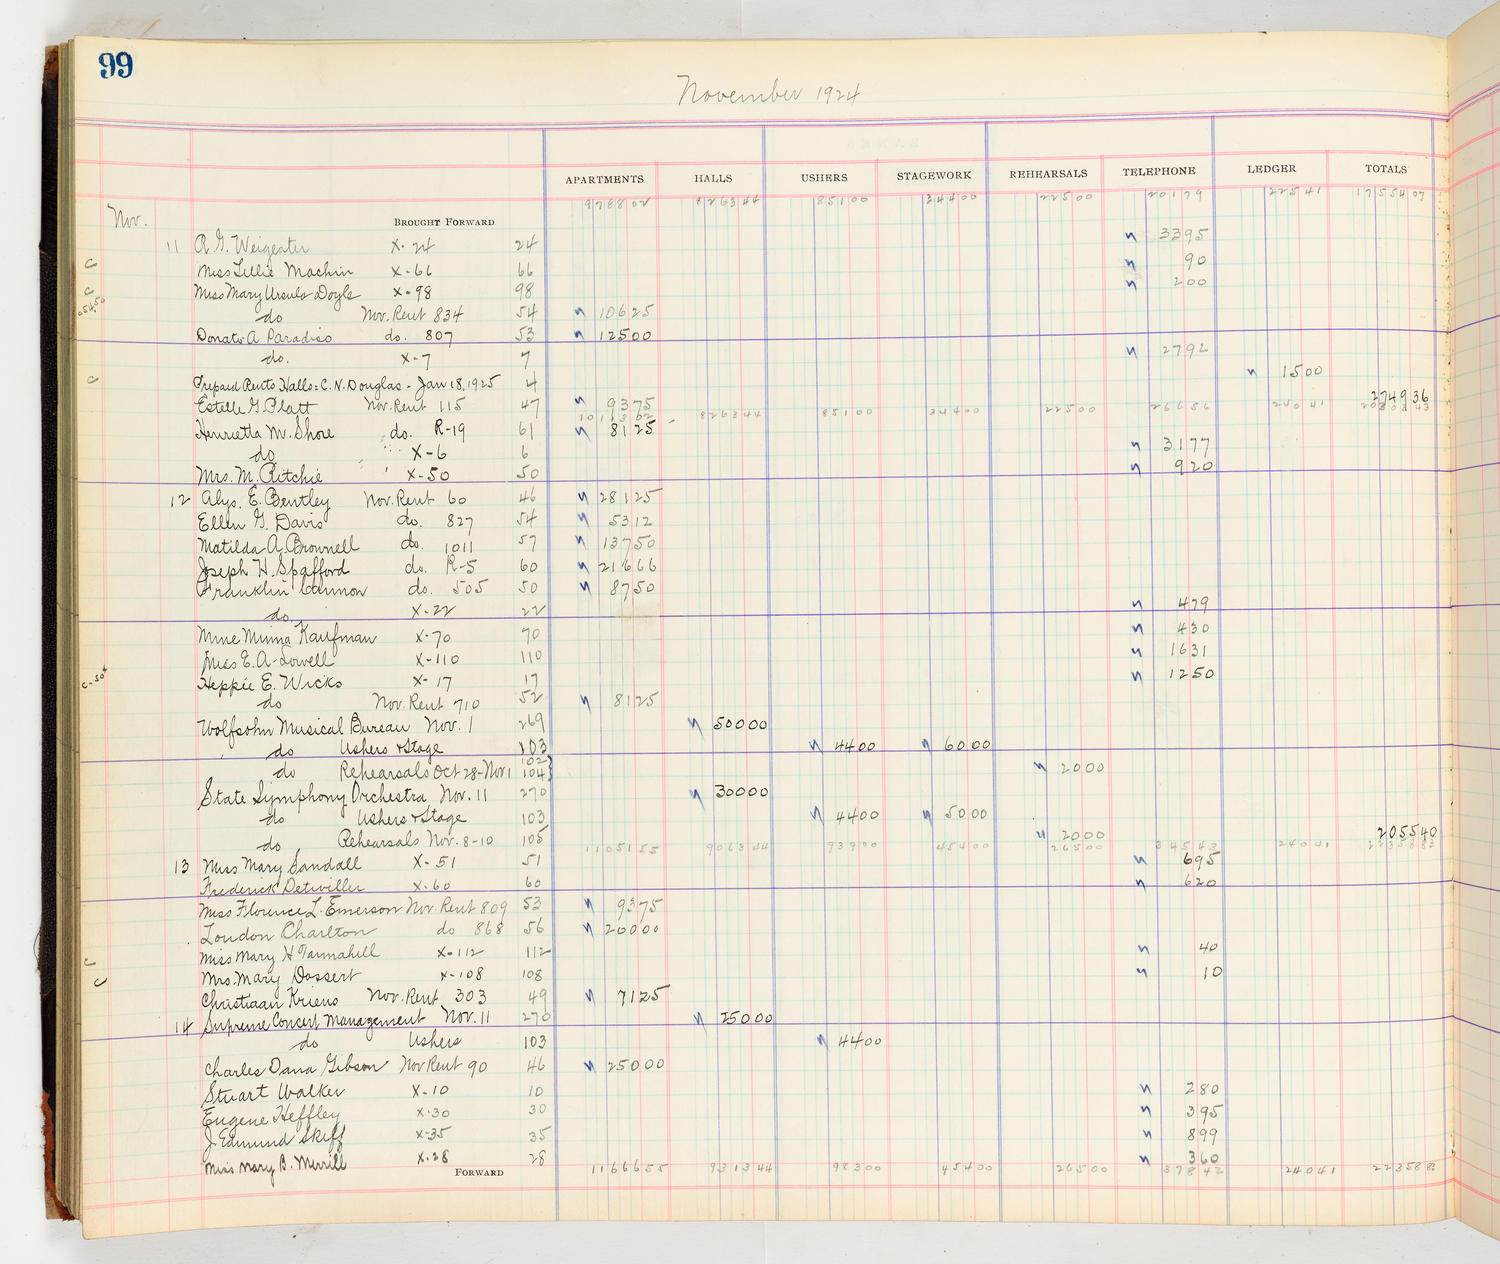 99
November 1924
APARTMENTS HALLS USHERS STAGEWORK REHEARSALS TELEPHONE LEDGER TOTALS
Nov. BROUGHT FORWARD 978802 826344 85100 34400 22500 20179 22541 1755407
11 R. G. Weigester X-24 24 3395
c Miss Lillie Machin X-66 66 90
c Miss Mary Ursula Doyle X-98 98 200
do Nov. Rent 834 54 10625
Donato A Paradiso do. 807 53 12500
do. X-7 7 2792
c Prepaid Rents Halls = C. N. Douglas - Jan 18, 1925 4 1500
Estelle G. Platt Nov. Rent 115 47 9375 274936
1011302 826344 85100 34400 22500 26656 24041
Henrietta M. Shore do. R-19 61 8125
do X-6 6 3177
Mrs. M. Ritchie X-50 50 920
12 Alys. E. Bentley Nov. Rent 60 46 28125
Ellen G. Davis do. 827 54 5312
Matilda A. Brownell do. 1011 57 13750
Joseph H. Spafford do. R-5 60 21666
Franklin Cannon do. 505 50 8750
do. X-22 22 479
Mme Minna Kaufman X-70 70 430
Miss E. A. Lowell X-110 110 1631
Heppie E. Wicks X-17 17 1250
do Nov. Rent 710 52 8125
Wolfsohn Musical Bureau Nov. 1 269 50000
do Ushers & Stage 103 4400 6000
do Rehearsals Oct 28-Nov 1 102 104 2000
State Symphony Orchestra Nov. 11 270 30000
do Ushers & Stage 103 4400 5000
do Rehearsals Nov. 8-10 105 2000 205540
1105155 906344 93900 45400 26500 34543 24041 2235883
13 Miss Mary Sandall X-51 51 695
Frederick Detwiller X-60 60 620
Miss Florence L. Emerson Nov. Rent 809 53 9375
Loudon Charlton do 868 56 20000
c Miss Mary H Tannahill X-112 112 40
c Mrs. Mary Dossert X-108 108 10
Christiaan Kriens Nov. Rent 303 49 7125
14 Supreme Concert Management Nov. 11 270 25000
do Ushers 103 4400
Charles Dana Gibson Nov Rent 90 46 25000
Stuart Walker X-10 10 280
Eugene Heffley X-30 30 395
J Edmund Skiff X-35 35 899
Miss Mary B. Merrill X-28 28 360
FORWARD 1166655 931344 98300 45400 26500 37842 24041 2235883